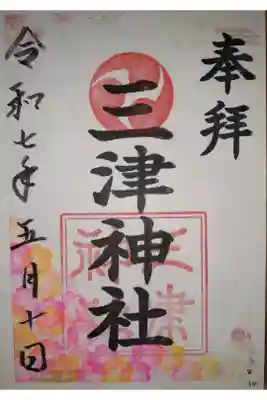 奉拝
三津神社
令和七年五月十日